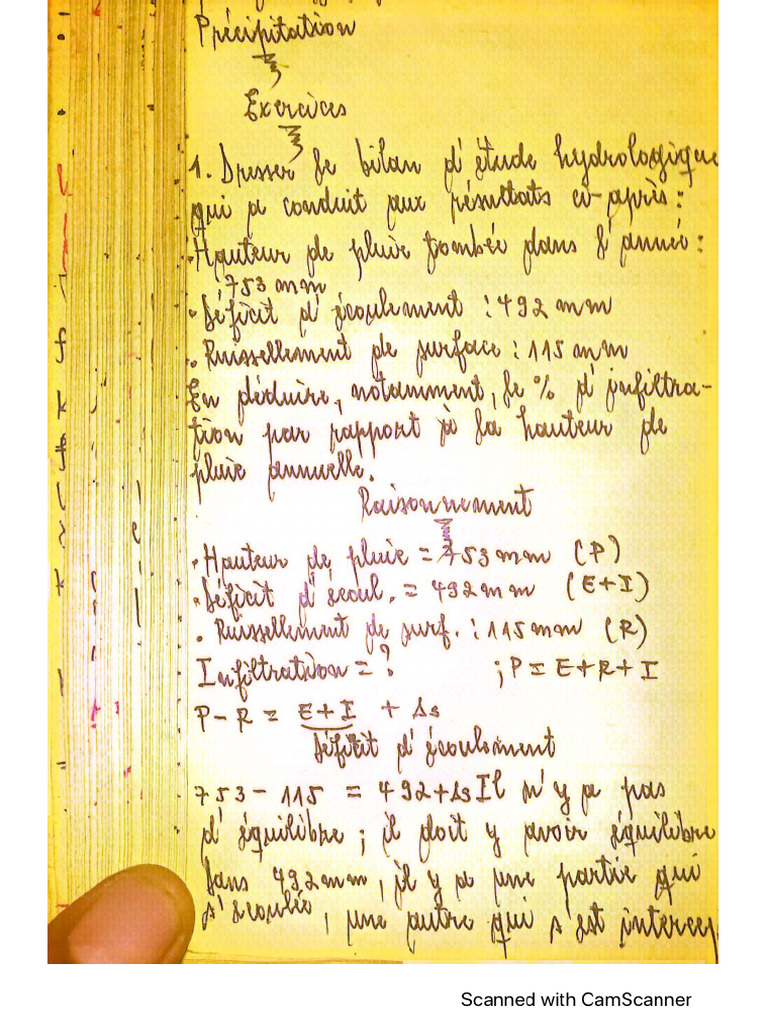 Précipitation
Exercices
1. Dresser le bilan d'étude hydrologique
qui a conduit aux résultats ci-après :
. Hauteur de pluie tombée dans l'année :
753 mm
. Déficit d'écoulement : 492 mm
. Ruissellement de surface : 115 mm
En déduire, notamment, le % d'infiltra-
tion par rapport à la hauteur de
pluie annuelle.
Raisonnement
. Hauteur de pluie = 753 mm (P)
. Déficit d'écoul. = 492 mm (E+I)
. Ruissellement de surf. : 115 mm (R)
Infiltration = ? ; P = E+R+I
P-R = E+I + Δs
Déficit d'écoulement
753 - 115 = 492+Δs Il n'y a pas
d'équilibre ; il doit y avoir équilibre
Dans 492 mm, il y a une partie qui
s'écoulée, une autre qui s'est intercep
Scanned with CamScanner